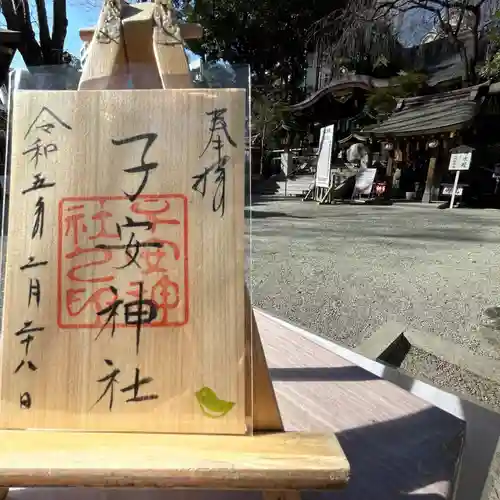 奉拝
子安神社
令和五年二月二十八日
子安神
社之印